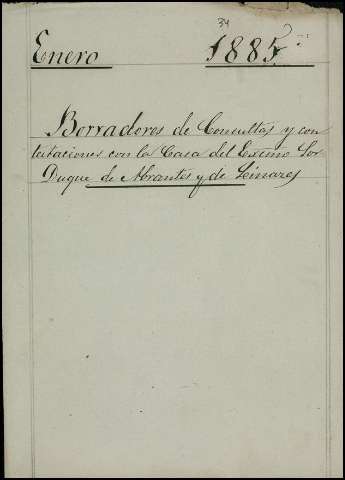 34
Enero 1885
Borradores de Consultas y con
testaciones con la Casa del Excmo Sor
Duque de Abrantes y de Linares